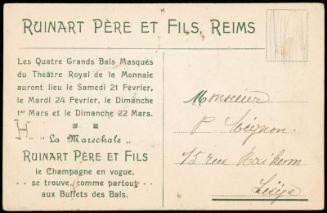 RUINART PÈRE ET FILS, REIMS
Les Quatre Grands Bals Masqués
du Théâtre Royal de la Monnaie
auront lieu le Samedi 21 Février,
le Mardi 24 Février, le Dimanche
1er Mars et le Dimanche 22 Mars.
„ La Maréchale „
RUINART PÈRE ET FILS
le Champagne en vogue,
se trouve, comme partout
aux Buffets des Bals.
Monsieur
P
15 rue
Liége